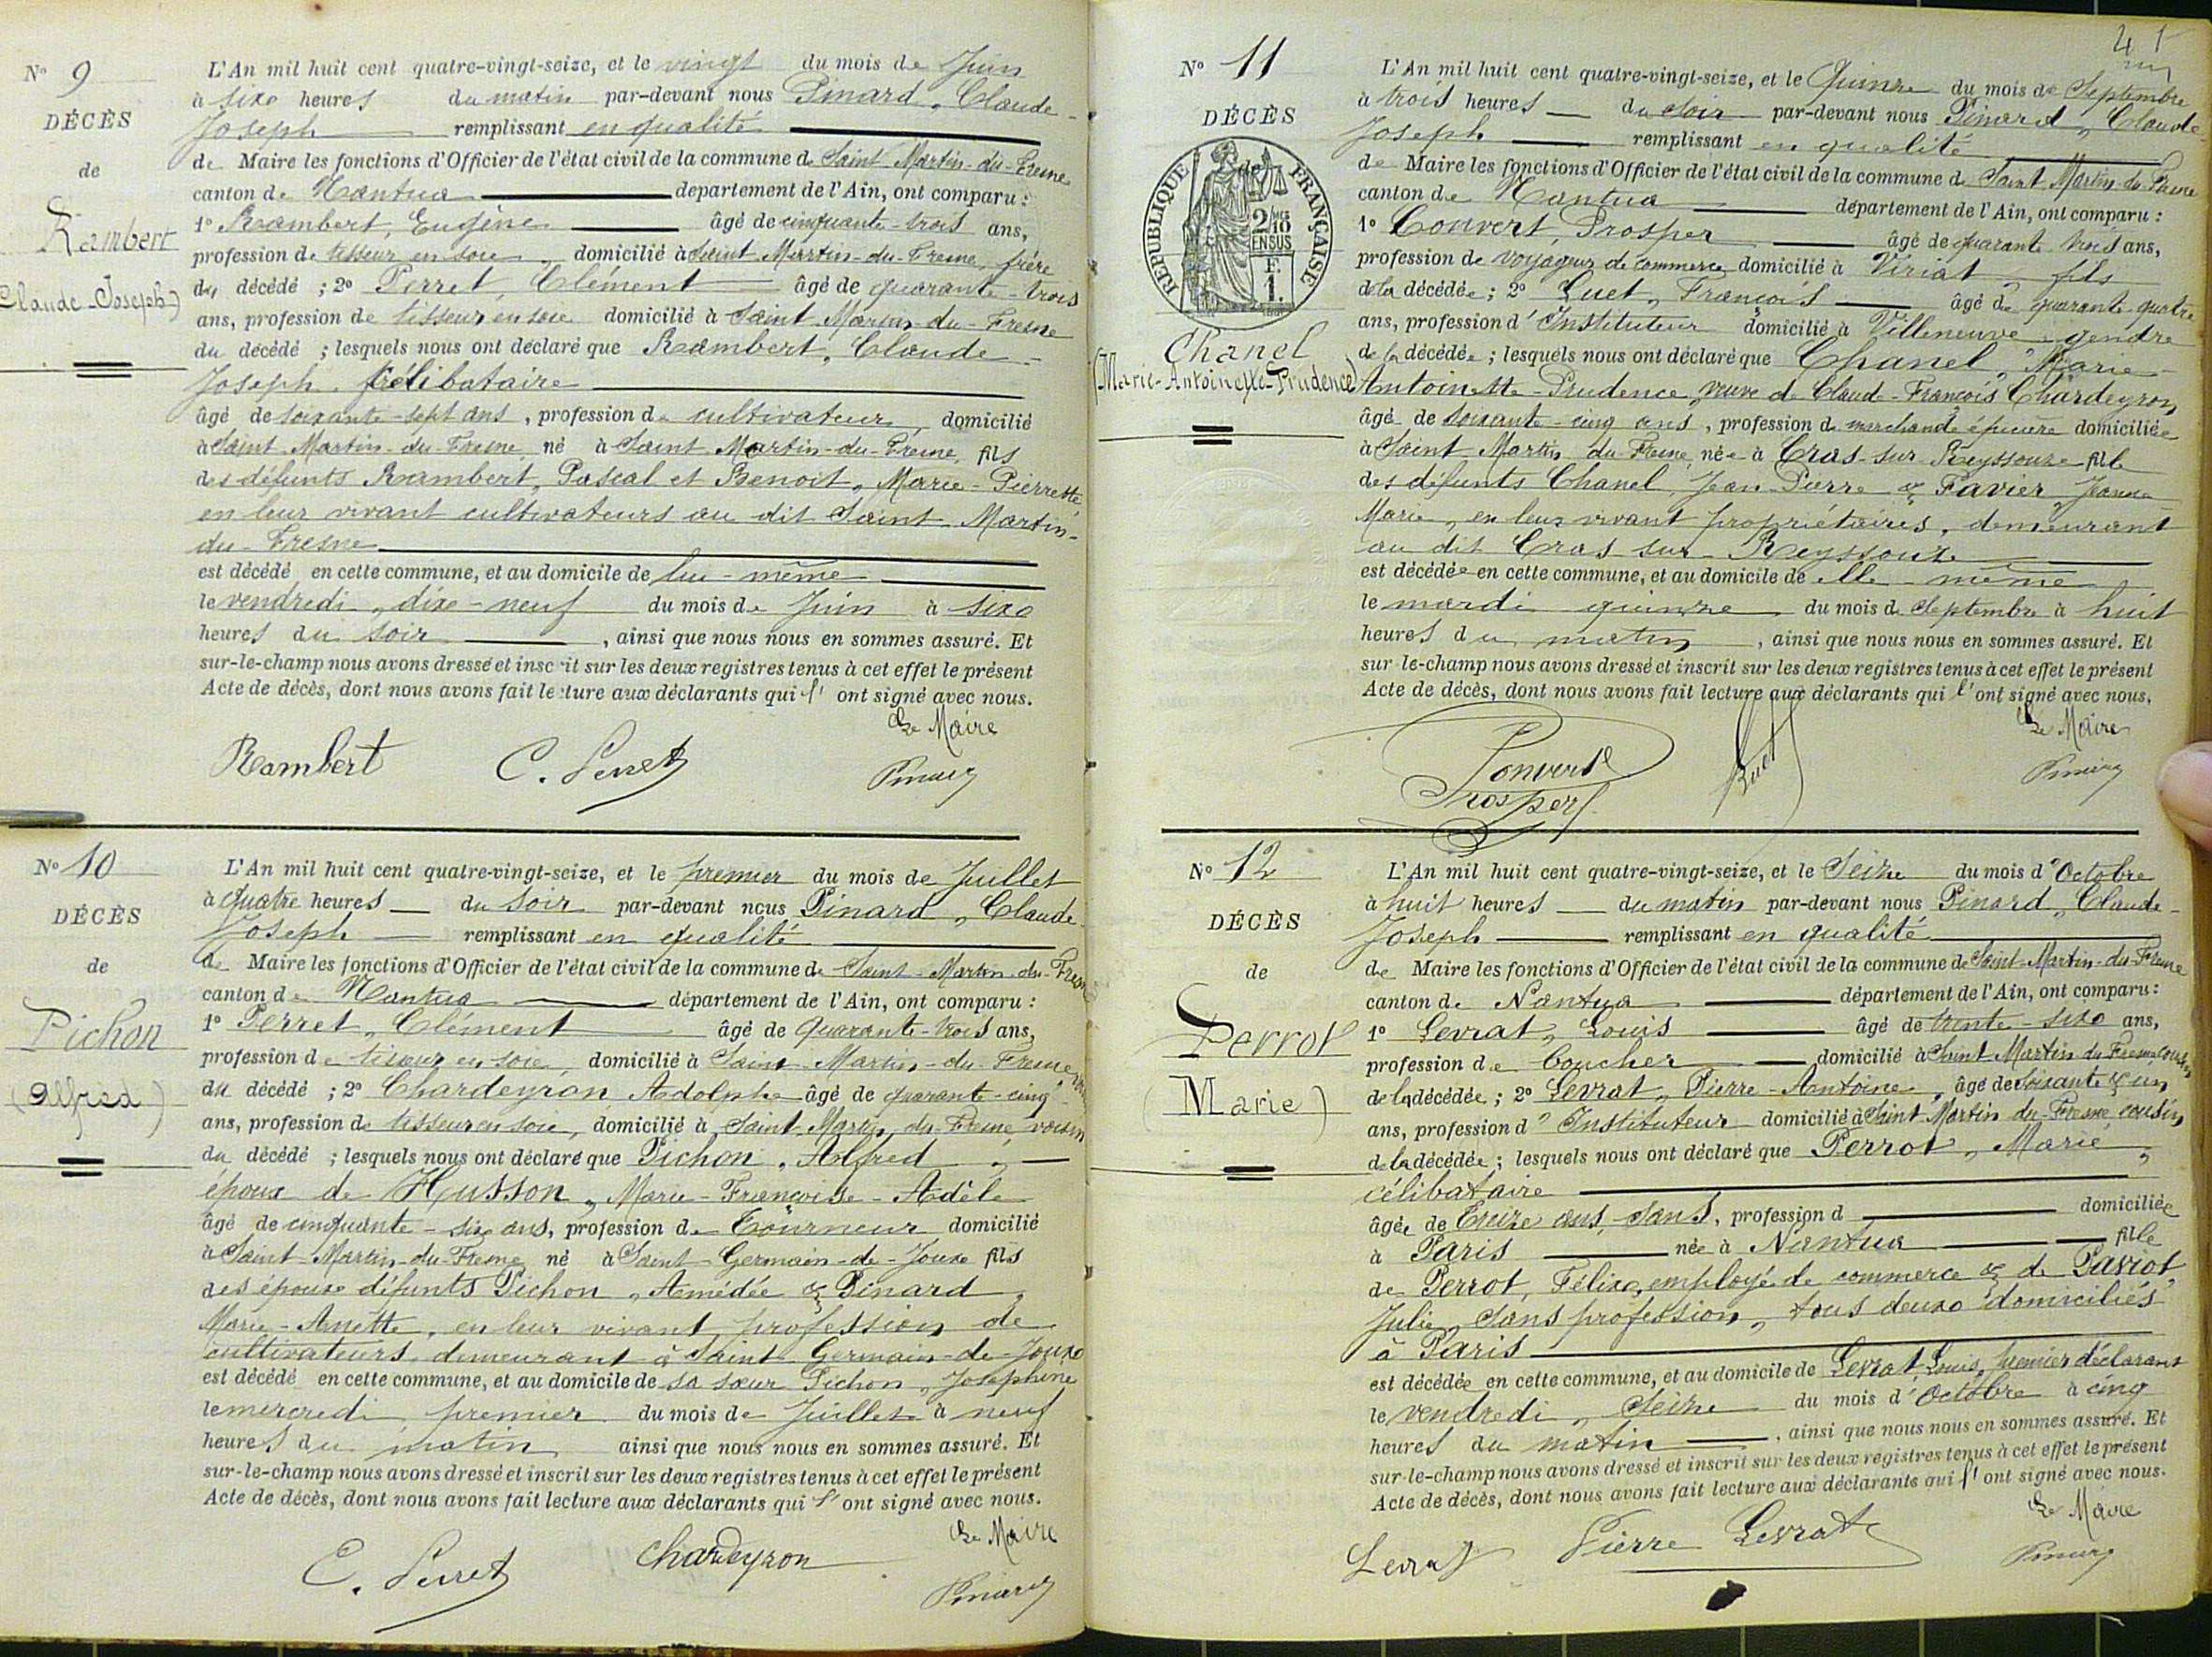 Nº 9
DÉCÈS
de
Rambert
Claude-Joseph)
L'An mil huit cent quatre-vingt-seize, et le vingt du mois de Juin
à six heures du matin par-devant nous Pinard, Claude-
Joseph remplissant en qualité
de Maire les fonctions d'Officier de l'état civil de la commune de Saint Martin-du-Fresne
canton de Nantua département de l'Ain, ont comparu :
1º Rambert, Eugène âgé de cinquante-trois ans,
profession de tisseur en soie, domicilié à Saint Martin-du-Fresne, frère
du décédé ; 2º Perret, Clément âgé de quarante-trois
ans, profession de tisseur en soie domicilié à Saint Martin-du-Fresne
du décédé ; lesquels nous ont déclaré que Rambert, Claude-
Joseph, célibataire
âgé de soixante-sept ans, profession de cultivateur, domicilié
à Saint Martin-du-Fresne, né à Saint Martin-du-Fresne, fils
des défunts Rambert, Pascal et Benoit, Marie-Pierrette
en leur vivant cultivateurs au dit Saint Martin-
du-Fresne
est décédé en cette commune, et au domicile de lui-même
le vendredi, dix-neuf du mois de Juin à six
heures du soir, ainsi que nous nous en sommes assuré. Et
sur-le-champ nous avons dressé et inscrit sur les deux registres tenus à cet effet le présent
Acte de décès, dont nous avons fait lecture aux déclarants qui l' ont signé avec nous.
Le Maire
Rambert C. Perret Pinard
Nº 10
DÉCÈS
de
Pichon
(Alfred)
L'An mil huit cent quatre-vingt-seize, et le premier du mois de Juillet
à quatre heures du soir par-devant nous Pinard, Claude-
Joseph remplissant en qualité
de Maire les fonctions d'Officier de l'état civil de la commune de Saint-Martin-du-Fresne
canton de Nantua département de l'Ain, ont comparu :
1º Perret, Clément âgé de quarante-trois ans,
profession de tisseur en soie, domicilié à Saint-Martin-du-Fresne
du décédé ; 2º Chardeyron Adolphe âgé de quarante-cinq
ans, profession de tisseur en soie, domicilié à Saint-Martin-du-Fresne, voisin
du décédé ; lesquels nous ont déclaré que Pichon, Alfred,
époux de Husson, Marie-Françoise-Adèle
âgé de cinquante-six ans, profession de Tourneur domicilié
à Saint-Martin-du-Fresne, né à Saint-Germain-de-Joux fils
des époux défunts Pichon, Amédée & Pinard,
Marie-Anette, en leur vivant profession de
cultivateurs, demeurant à Saint Germain-de-Joux
est décédé en cette commune, et au domicile de sa sœur Pichon, Joséphine
le mercredi, premier du mois de Juillet à neuf
heures du matin ainsi que nous nous en sommes assuré. Et
sur-le-champ nous avons dressé et inscrit sur les deux registres tenus à cet effet le présent
Acte de décès, dont nous avons fait lecture aux déclarants qui l' ont signé avec nous.
Le Maire
C. Perret Chardeyron Pinard
Nº 11
DÉCÈS
de
RÉPUBLIQUE FRANÇAISE
2/10 EN SUS
F. 1.
Chanel
(Marie-Antoinette-Prudence)
L'An mil huit cent quatre-vingt-seize, et le Quinze du mois de Septembre
à trois heures du soir par-devant nous Pinard, Claude-
Joseph remplissant en qualité
de Maire les fonctions d'Officier de l'état civil de la commune de Saint Martin du Fresne
canton de Nantua département de l'Ain, ont comparu :
1º Convert, Prosper âgé de quarante trois ans,
profession de voyageur de commerce, domicilié à Viriat, fils
de la décédée ; 2º Luet, François âgé de quarante-quatre
ans, profession d'Instituteur domicilié à Villeneuve, gendre
de la décédée ; lesquels nous ont déclaré que Chanel, Marie-
Antoinette-Prudence, veuve de Claude-François Chardeyron
âgé de soixante-cinq ans, profession de marchande épicière domiciliée
à Saint Martin du Fresne, née à Cras-sur-Reyssouze fille
des défunts Chanel, Jean Pierre & Favier, Jeanne
Marie, en leur vivant propriétaires, demeurant
au dit Cras-sur-Reyssouze
est décédée en cette commune, et au domicile de elle-même
le mardi quinze du mois de Septembre à huit
heures du matin, ainsi que nous nous en sommes assuré. Et
sur-le-champ nous avons dressé et inscrit sur les deux registres tenus à cet effet le présent
Acte de décès, dont nous avons fait lecture aux déclarants qui l' ont signé avec nous.
Le Maire
Convert
Prosper
Luet Pinard
Nº 12
DÉCÈS
de
Perrot
(Marie)
L'An mil huit cent quatre-vingt-seize, et le Seize du mois d'Octobre
à huit heures du matin par-devant nous Pinard, Claude-
Joseph remplissant en qualité
de Maire les fonctions d'Officier de l'état civil de la commune de Saint-Martin-du-Fresne
canton de Nantua département de l'Ain, ont comparu :
1º Levrat, Louis âgé de trente-six ans,
profession de boucher domicilié à Saint Martin du Fresne cousin
de la décédée ; 2º Levrat, Pierre-Antoine, âgé de soixante & un
ans, profession d'Instituteur domicilié à Saint Martin du-Fresne cousin
de la décédée ; lesquels nous ont déclaré que Perrot, Marie,
célibataire
âgée de treize ans, sans, profession d domiciliée
à Paris née à Nantua fille
de Perrot, Félix, employé de commerce & de Paviot,
Julie, sans profession, tous deux domiciliés
à Paris
est décédée en cette commune, et au domicile de Levrat, Louis, premier déclarant
le vendredi, Seize du mois d'Octobre à cinq
heures du matin, ainsi que nous nous en sommes assuré. Et
sur-le-champ nous avons dressé et inscrit sur les deux registres tenus à cet effet le présent
Acte de décès, dont nous avons fait lecture aux déclarants qui l' ont signé avec nous.
Le Maire
Levrat Pierre Levrat Pinard